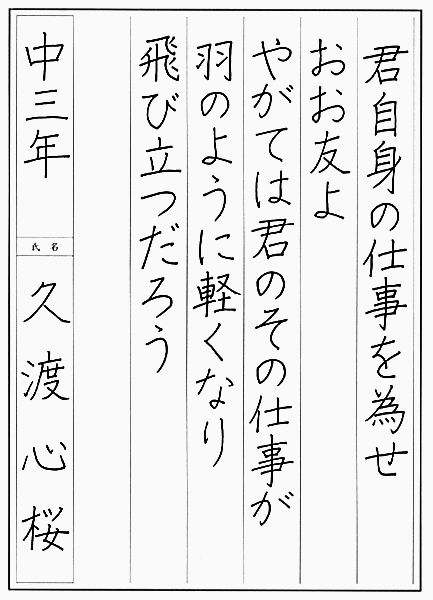 君自身の仕事を為せ
おお友よ
やがては君のその仕事が
羽のように軽くなり
飛び立つだろう
中三年
氏名
久渡心桜